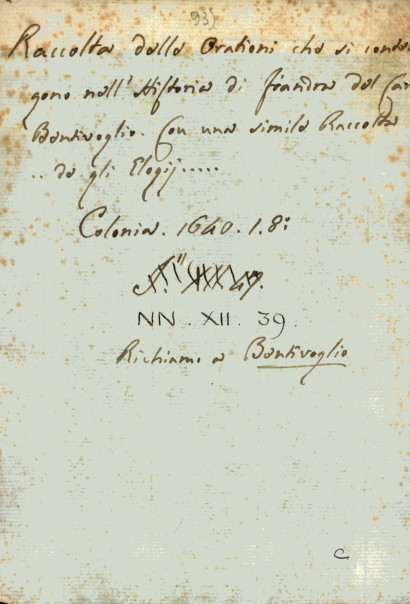 93)
Raccolta delle Orationi che si conten
gono nell' Historia di fiandra del Car
Bentivoglio. Con una simile Raccolta
.. de gli Elogij.....
Colonia. 1640. 1. 8º
NN. XII. 39.
Richiamo a Bentivoglio
C